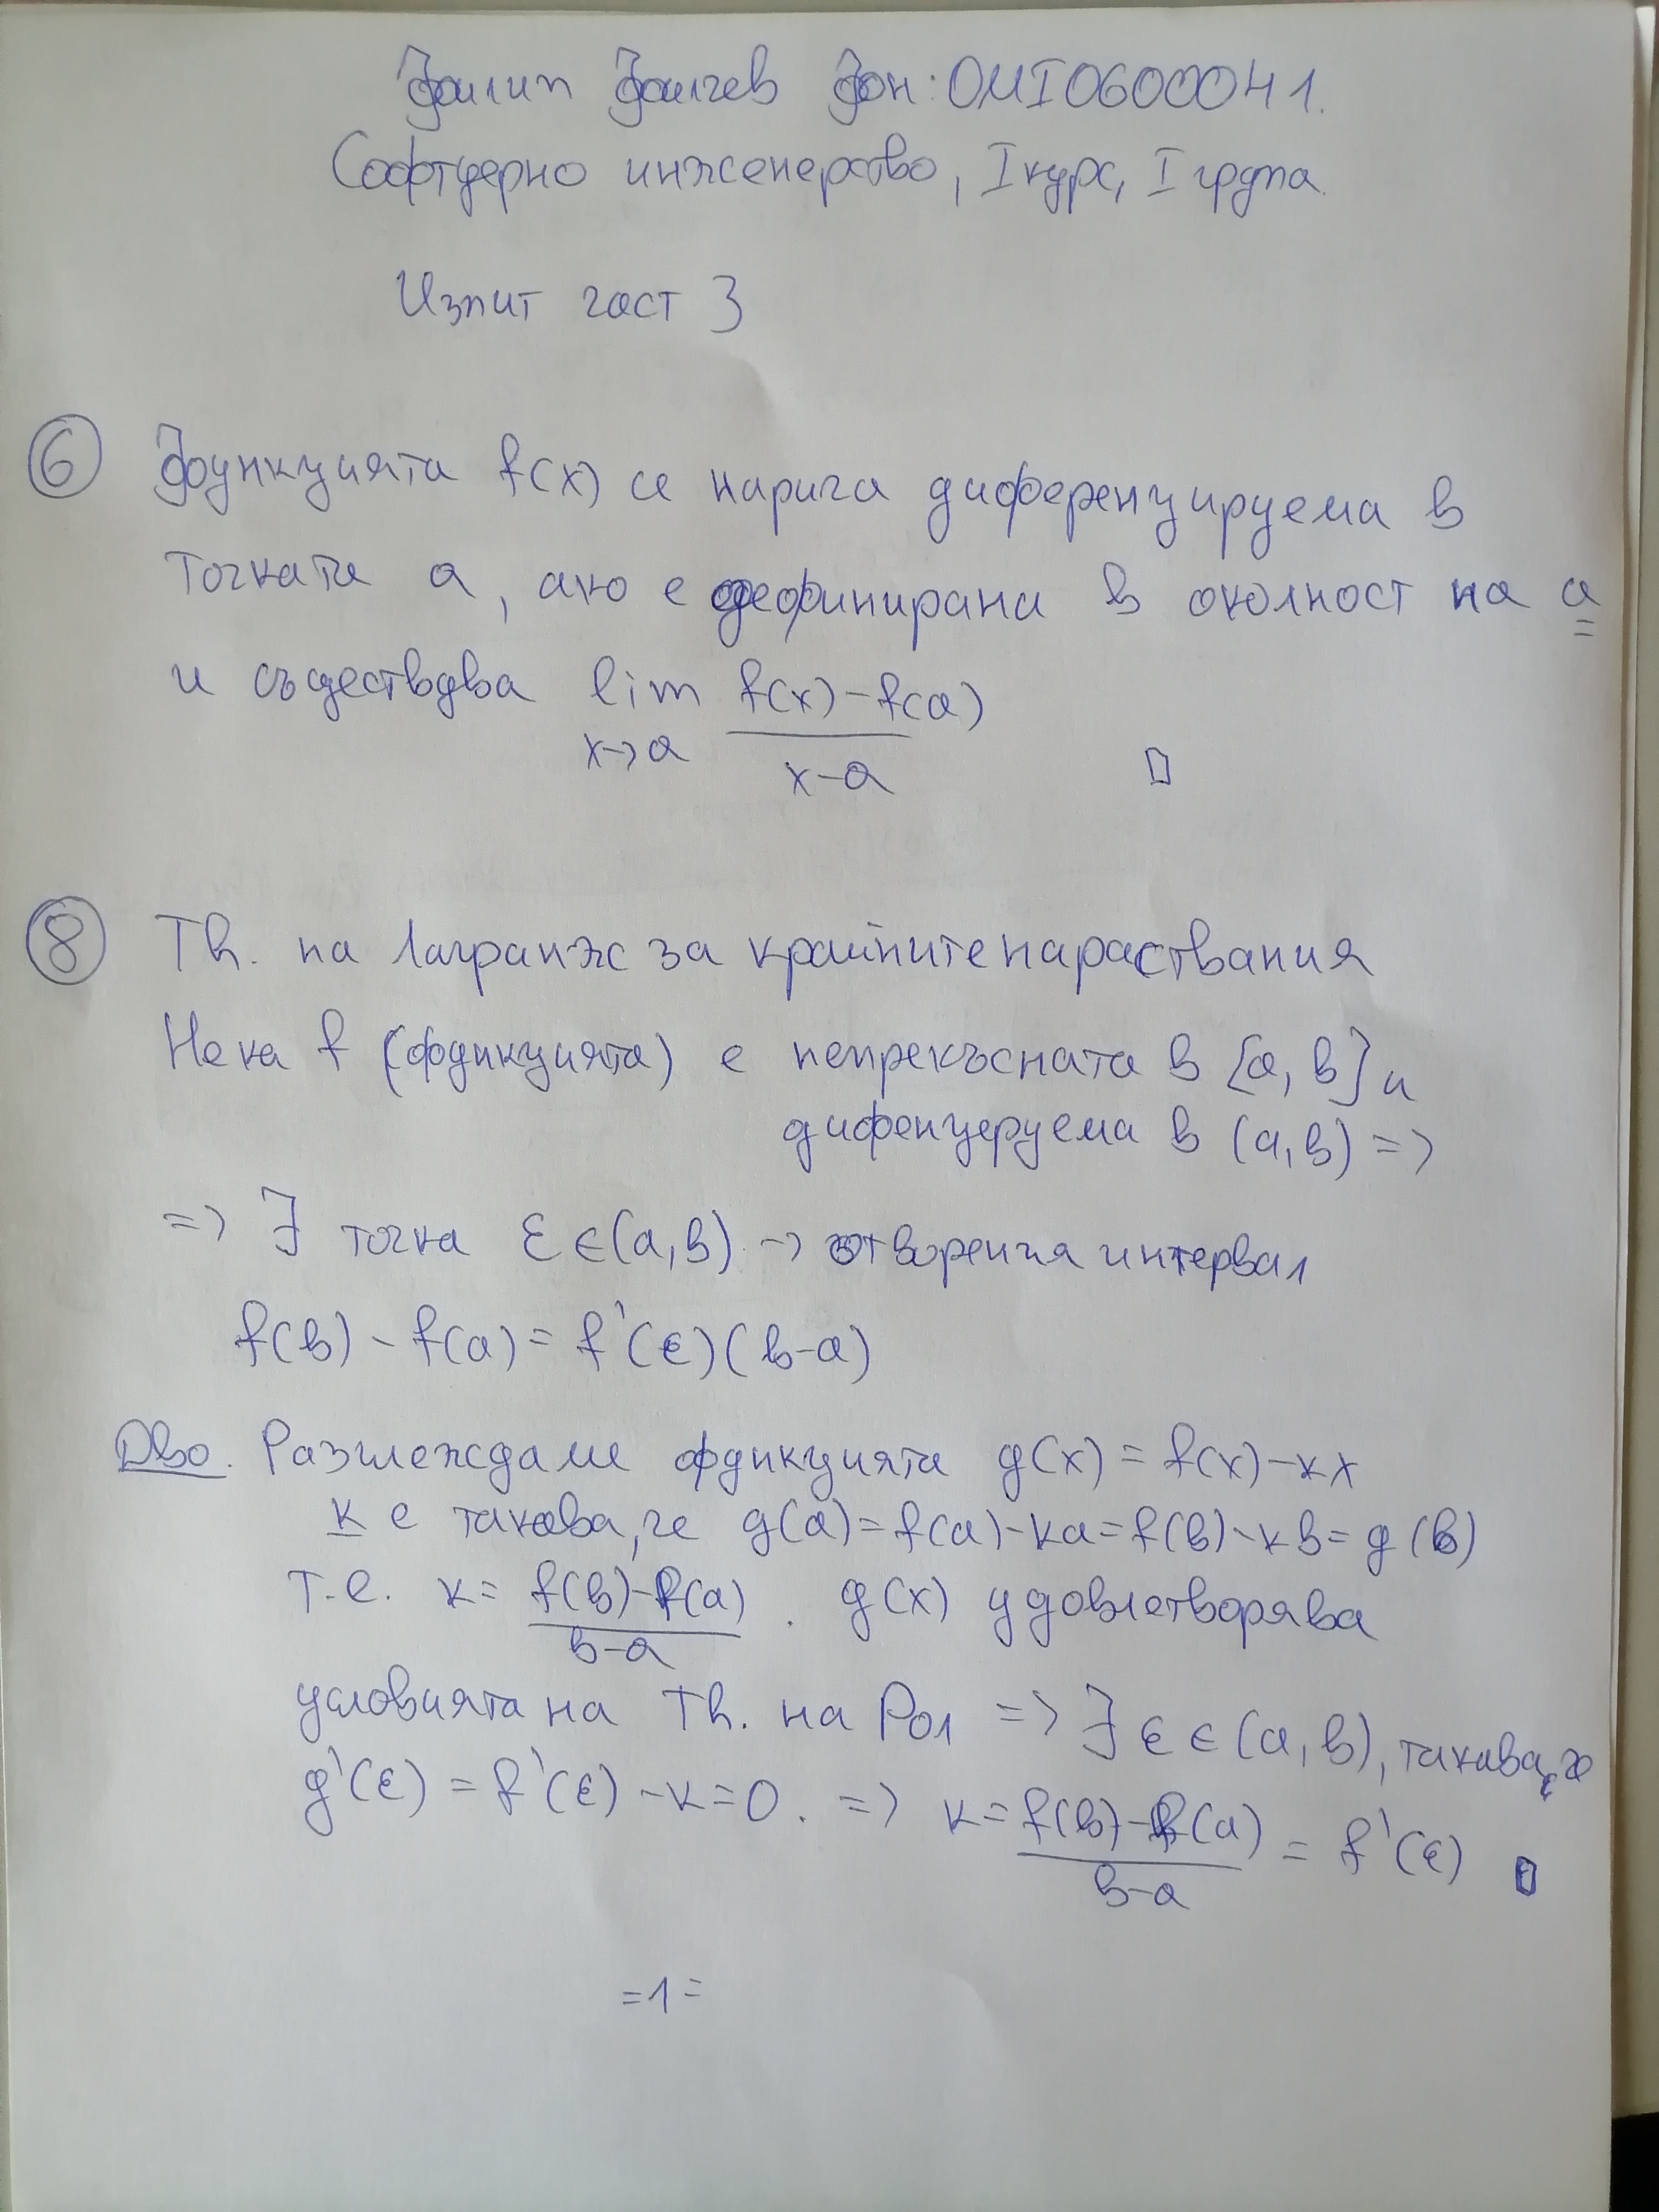 Филип Филчев Фон: 0MI0600041.
Софтуерно инженерство, I курс, I група.
Изпит част 3
6 Функцията f(x) се нарича диференцируема в
точката a, ако е дефинирана в околност на a
и съдествдва lim f(x)-f(a)
x->a x-a □
8 Th. на Лагранж за крайните нараствания
Нека f (функцията) е непрекъсната в [a, b] и
дифенцеруема в (a, b) =>
=> ∃ точка ε ∈ (a, b) -> отворения интервал
f(b) - f(a) = f'(ε)(b-a)
Дво. Разглеждаме функцията g(x) = f(x) - kx
k е такава, че g(a) = f(a) - ka = f(b) - kb = g(b)
т.е. k = f(b)-f(a) . g(x) удовлетворява
b-a
условията на Th. на Рол => ∃ ε ∈ (a, b), такава, че
g'(ε) = f'(ε) - k = 0. => k = f(b)-f(a) = f'(ε) □
b-a
=1=